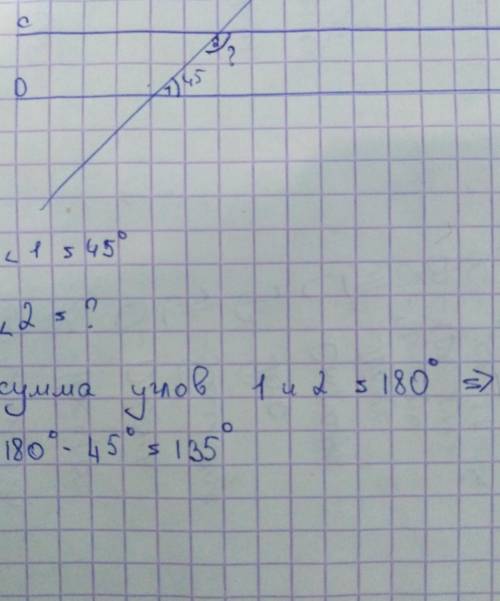 C
2 ?
D 1 45
< 1 = 45°
< 2 = ?
сумма углов 1 и 2 = 180° =>
180° - 45° = 135°